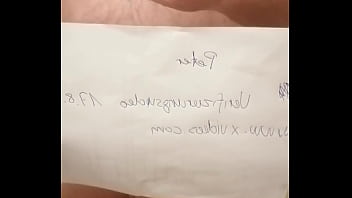 Peter
Verifizierungsvideo 17.8.
www.xvideos.com